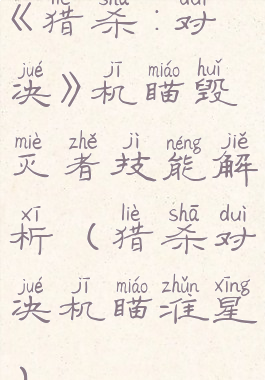 liè shā duì
《猎杀:对
jué jī miáo huǐ
决》机瞄毁
miè zhě jì néng jiě
灭者技能解
xī liè shā duì
析(猎杀对
jué jī miáo zhǔn xīng
决机瞄准星
)